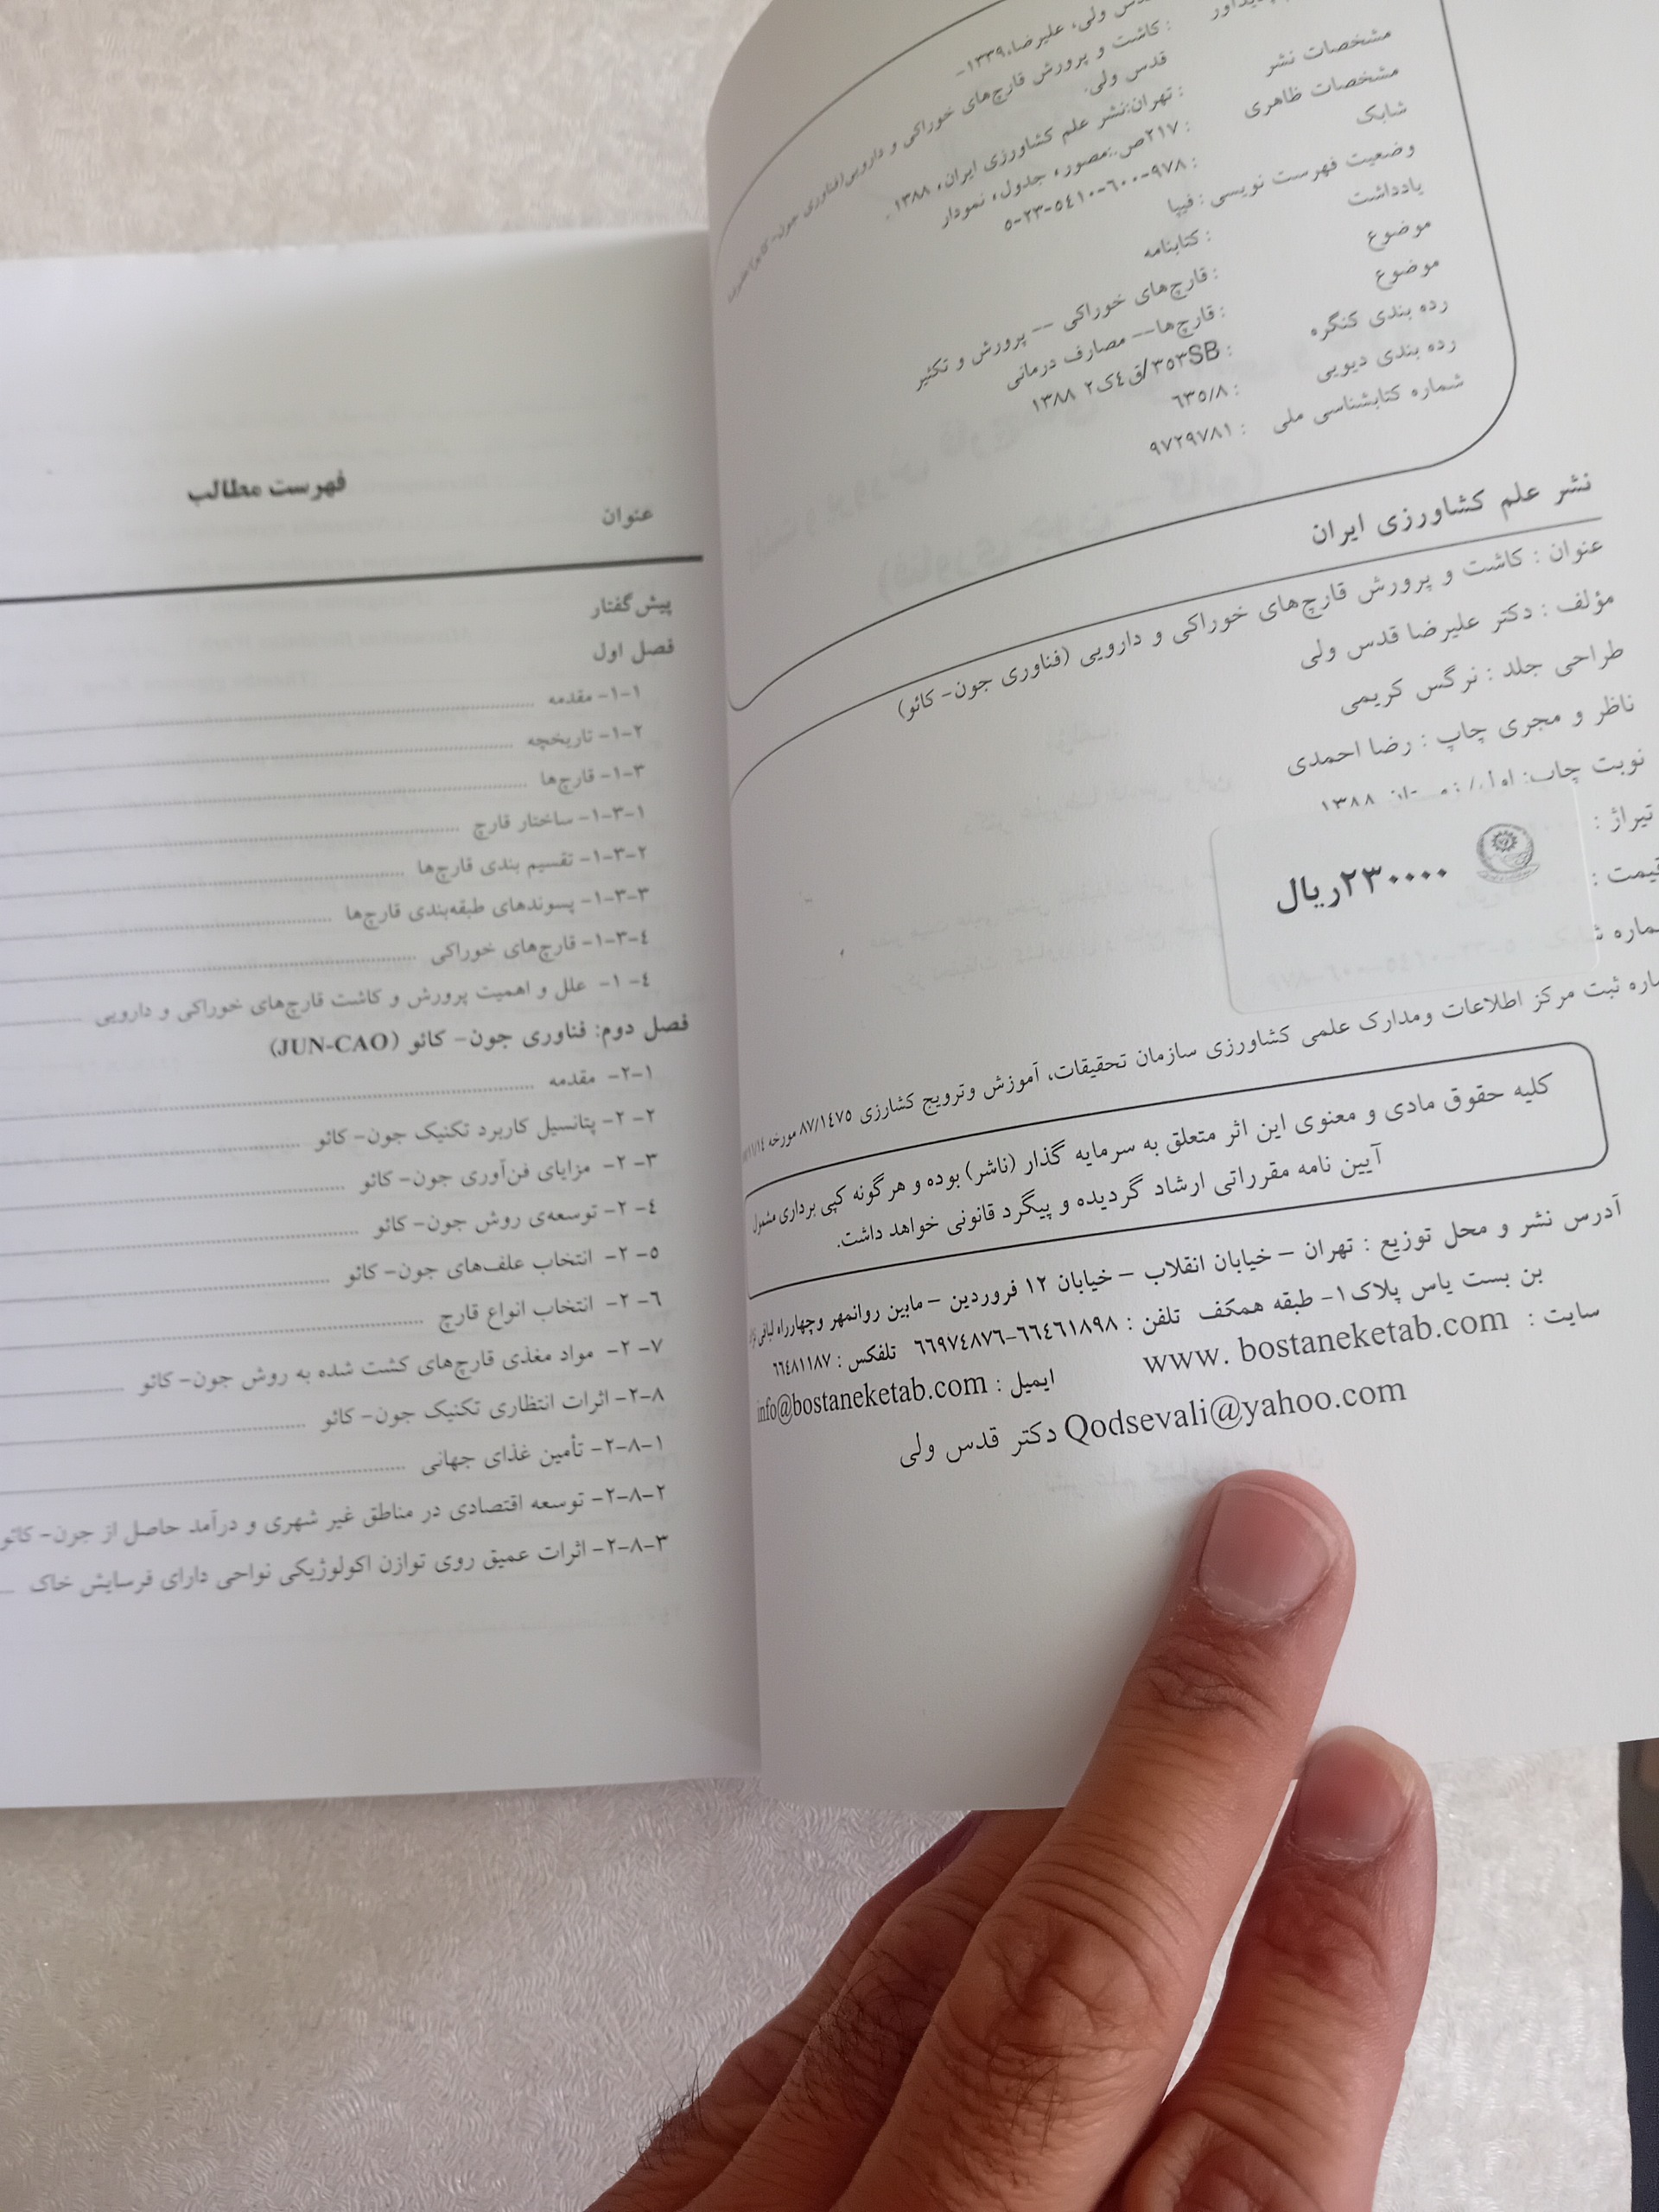 قدس ولی، علیرضا،۱۳۳۹-
: کاشت و پرورش قارچ‌های خوراکی و دارویی(فناوری جون- کائو)
قدس ولی.
مشخصات نشر : تهران:نشر علم کشاورزی ایران، ۱۳۸۸.
مشخصات ظاهری : ۲۱۷ص.:مصور، جدول، نمودار
شابک : ۹۷۸-۶۰۰-۵۴۱۰-۲۳-۵
وضعیت فهرست نویسی : فیپا
یادداشت : کتابنامه
موضوع : قارچ‌های خوراکی -- پرورش و تکثیر
موضوع : قارچ‌ها-- مصارف درمانی
رده بندی کنگره : ۳۵۳SB/ق۴ک۲ ۱۳۸۸
رده بندی دیویی : ۶۳۵/۸
شماره کتابشناسی ملی : ۹۷۲۹۷۸۱
نشر علم کشاورزی ایران
عنوان : کاشت و پرورش قارچ‌های خوراکی و دارویی (فناوری جون- کائو)
مؤلف : دکتر علیرضا قدس ولی
طراحی جلد : نرگس کریمی
ناظر و مجری چاپ : رضا احمدی
نوبت چاپ: ۱۳۸۸
تیراژ :
قیمت :
۲۳۰۰۰۰ریال
ثبت مرکز اطلاعات ومدارک علمی کشاورزی سازمان تحقیقات، آموزش وترویج کشارزی ۸۷/۱۴۷۵ مورخه
کلیه حقوق مادی و معنوی این اثر متعلق به سرمایه گذار (ناشر) بوده و هرگونه کپی برداری مشمول
آیین نامه مقرراتی ارشاد گردیده و پیگرد قانونی خواهد داشت.
آدرس نشر و محل توزیع : تهران – خیابان انقلاب – خیابان ۱۲ فروردین – مابین روانمهر وچهارراه لبافی
بن بست یاس پلاک۱- طبقه همکف تلفن : ۶۶۴۶۱۸۹۸-۶۶۹۷۴۸۷۶ تلفکس : ۶۶۴۸۱۱۸۷
سایت : www. bostaneketab.com ایمیل : info@bostaneketab.com
Qodsevali@yahoo.com دکتر قدس ولی
فهرست مطالب
عنوان
پیش‌گفتار
فصل اول
۱-۱- مقدمه
۱-۲- تاریخچه
۱-۳- قارچ‌ها
۱-۳-۱- ساختار قارچ
۱-۳-۲- تقسیم بندی قارچ‌ها
۱-۳-۳- پسوندهای طبقه‌بندی قارچ‌ها
۱-۳-۴- قارچ‌های خوراکی
۱-۴- علل و اهمیت پرورش و کاشت قارچ‌های خوراکی و دارویی
فصل دوم: فناوری جون- کائو (JUN-CAO)
۲-۱- مقدمه
۲-۲- پتانسیل کاربرد تکنیک جون- کائو
۲-۳- مزایای فن‌آوری جون- کائو
۲-۴- توسعه‌ی روش جون- کائو
۲-۵- انتخاب علف‌های جون- کائو
۲-۶- انتخاب انواع قارچ
۲-۷- مواد مغذی قارچ‌های کشت شده به روش جون- کائو
۲-۸- اثرات انتظاری تکنیک جون- کائو
۲-۸-۱- تأمین غذای جهانی
۲-۸-۲- توسعه اقتصادی در مناطق غیر شهری و درآمد حاصل از جون- کائو
۲-۸-۳- اثرات عمیق روی توازن اکولوژیکی نواحی دارای فرسایش خاک